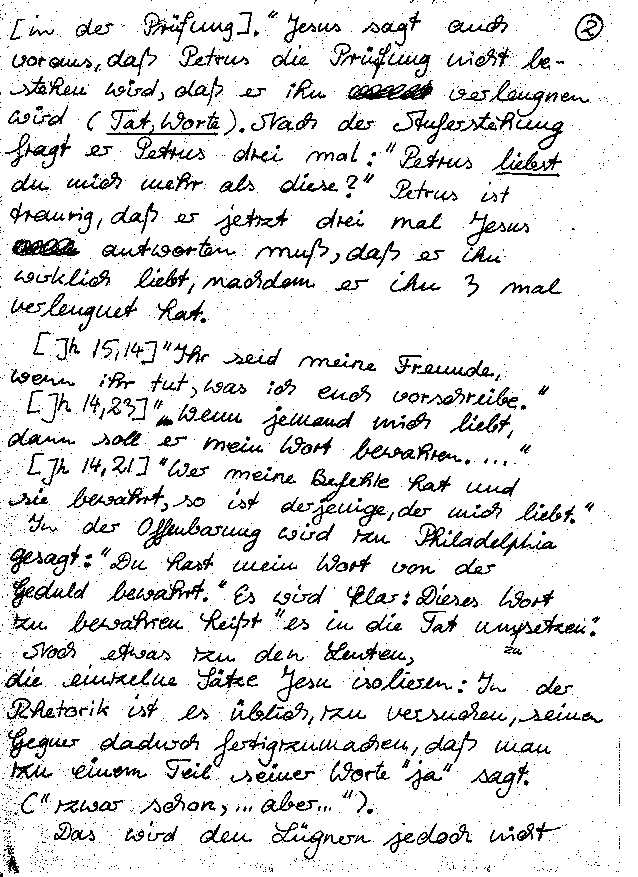 [in der Prüfung]." Jesus sagt auch ②
voraus, daß Petrus die Prüfung nicht be-
stehen wird, daß er ihn verleugnen
wird (Tat, Worte). Nach der Auferstehung
fragt er Petrus drei mal: "Petrus liebst
du mich mehr als diese?" Petrus ist
traurig, daß er jetzt drei mal Jesus
antworten muß, daß er ihn
wirklich liebt, nachdem er ihn 3 mal
verleugnet hat.
[Jh 15,14] "Ihr seid meine Freunde,
wenn ihr tut, was ich euch vorschreibe."
[Jh 14,23] "Wenn jemand mich liebt,
dann soll er mein Wort bewahren. ..."
[Jh 14,21] "Wer meine Befehle hat und
sie bewahrt, so ist derjenige, der mich liebt."
In der Offenbarung wird zu Philadelphia
gesagt: "Du hast mein Wort von der
Geduld bewahrt." Es wird klar: Dieses Wort
zu bewahren heißt "es in die Tat umsetzen".
zu
Noch etwas zu den Leuten,
die einzelne Sätze Jesu isolieren: In der
Rhetorik ist es üblich, zu versuchen, seinen
Gegner dadurch fertigzumachen, daß man
zu einem Teil seiner Worte "ja" sagt.
("zwar schon, ... aber...").
Das wird den Lügnern jedoch nicht